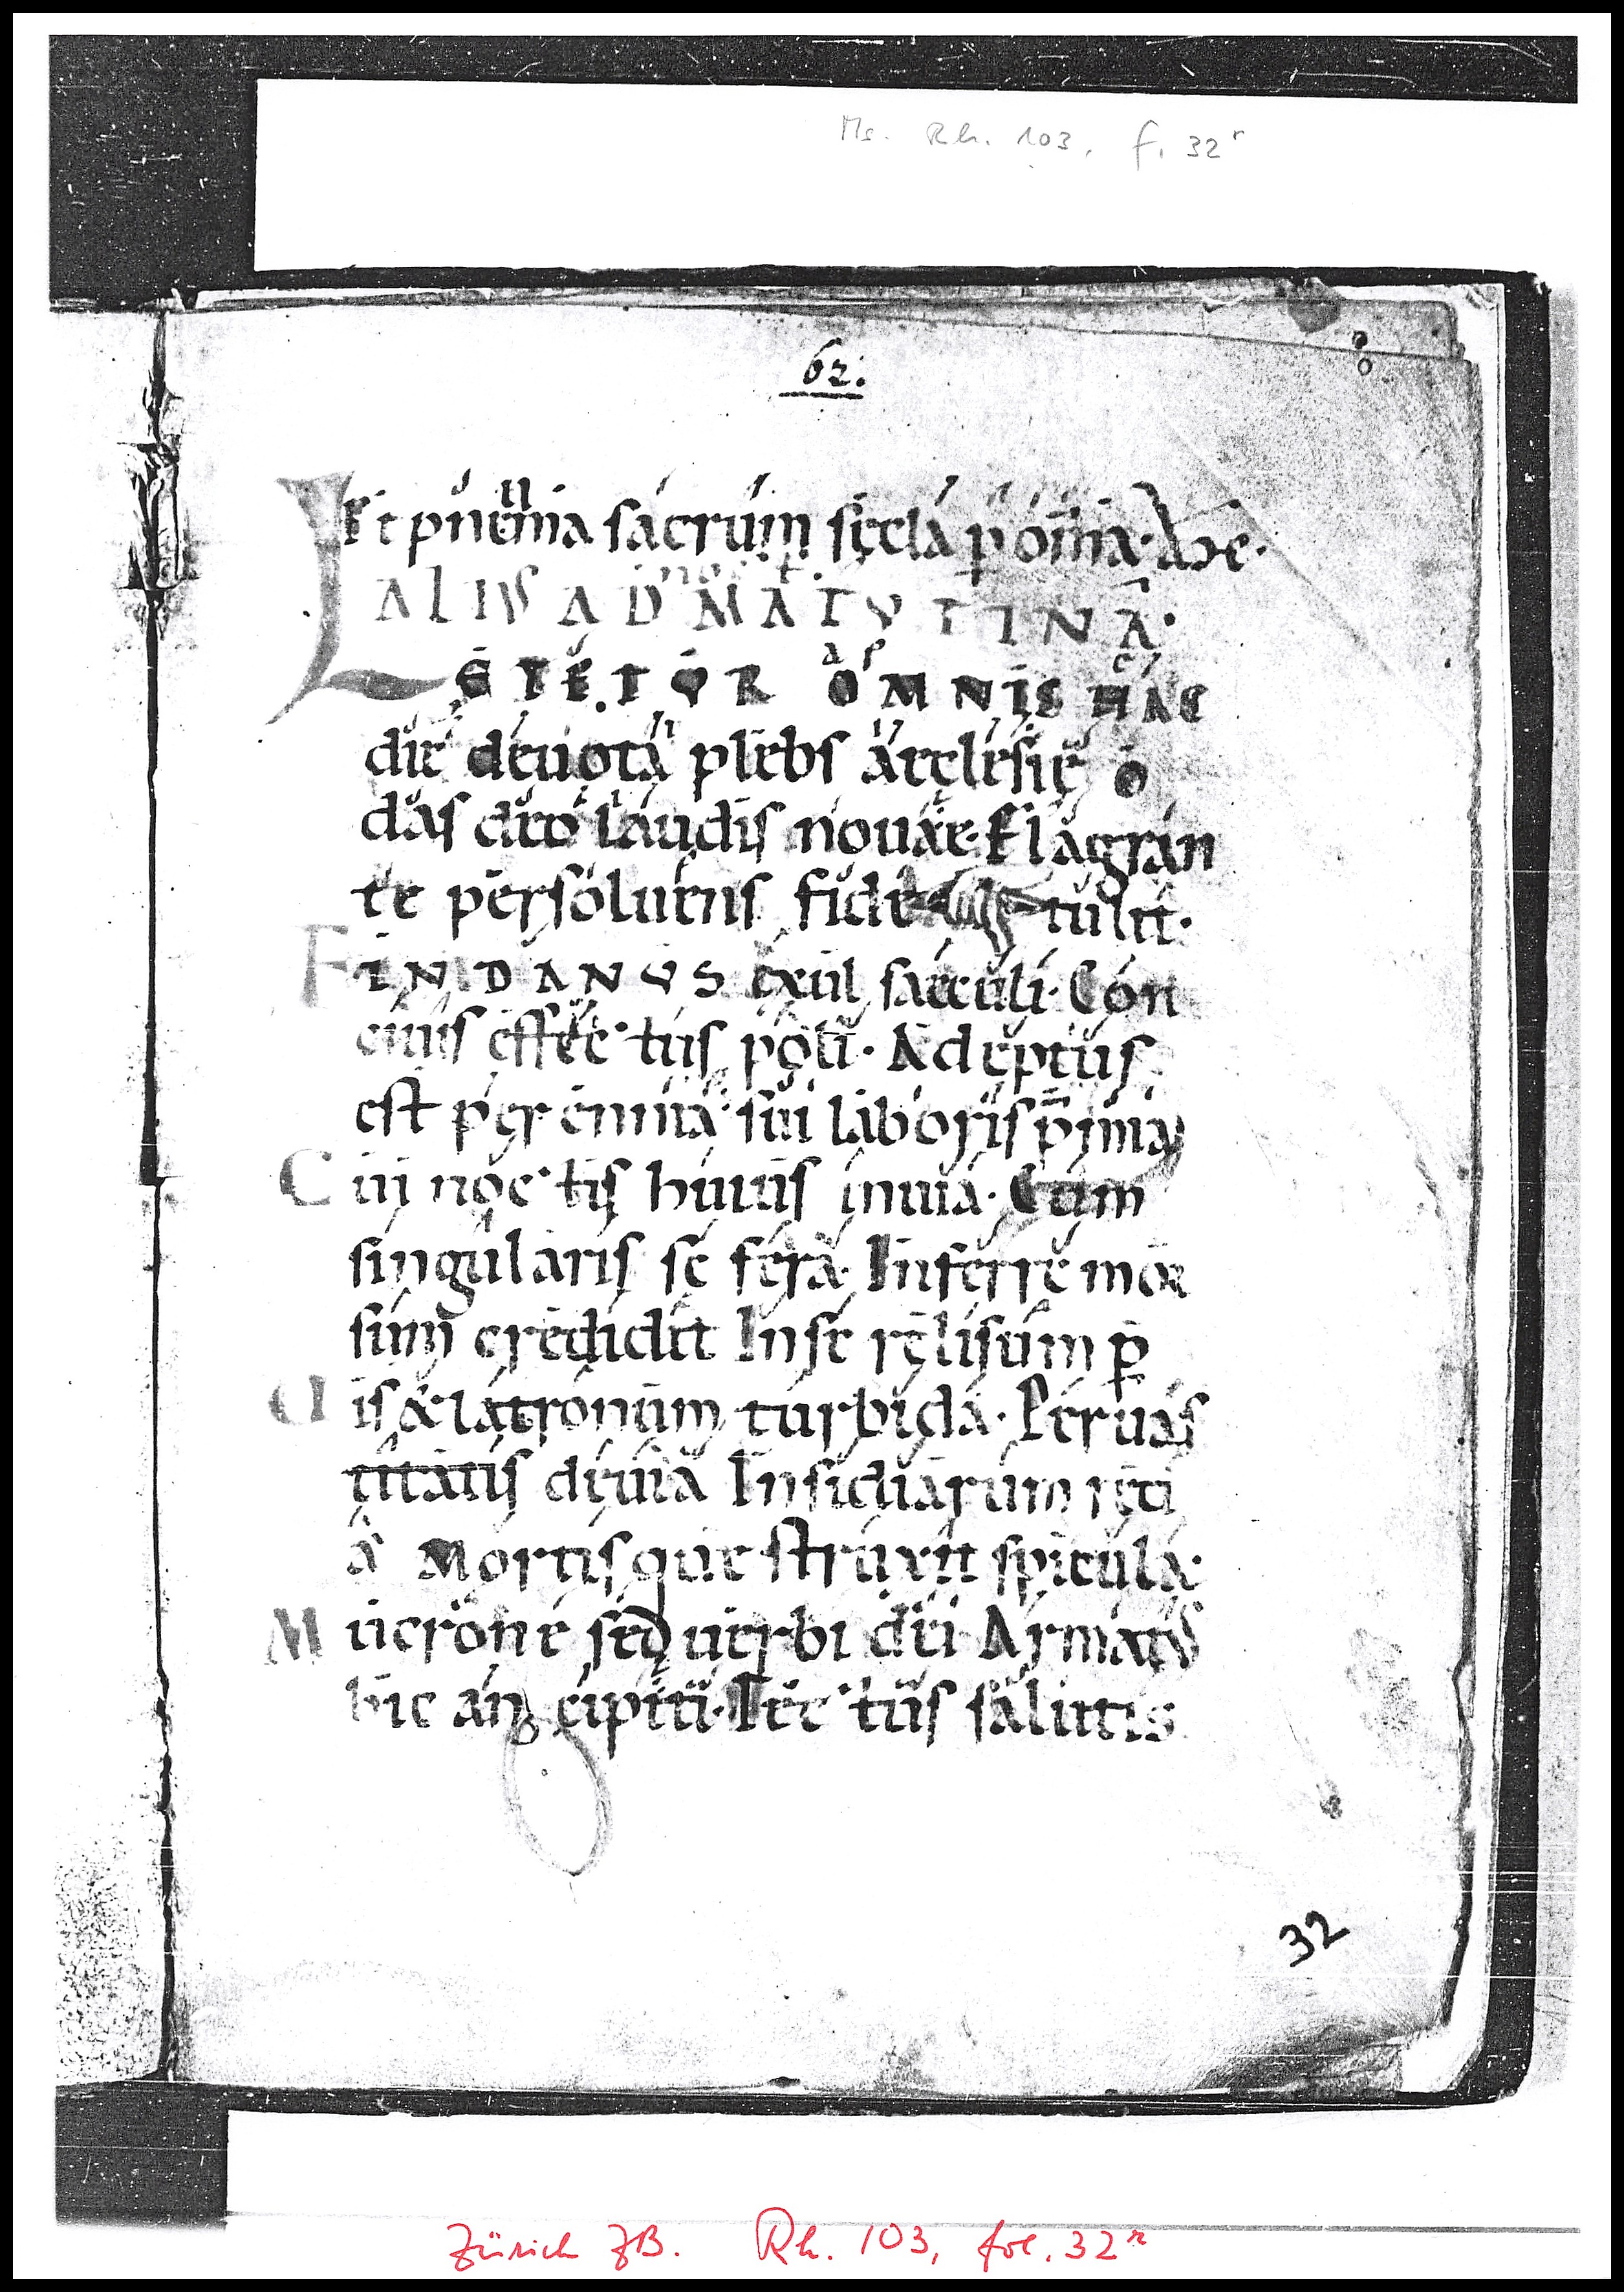 Ms. Rh. 103, f. 32r
62.
Et pneuma sacrum sęcla p om̄ia. Am̄e.
ALIVS AD MATVTINĀ.
LETETVR OMNIS HAC
die deuota plebs aecclesię o
das deo laudis nouae. Flagran
te persoluens fide tulit.
FINDANVS exul saeculi. Con
ciuis effectus poli. Adeptus
est perennia sui laboris p̄mia
Cui noctis huius inuia. Cum
singularis se fera Inferre mor
sum credidit In se relisum p̄
Uis & latronum turbida. Per uas
titatis deuia Insidiarum reti
a Mortisque struxit spicula.
Mucrone sed uerbi dei Armatus
hic ancipiti. Tectus salutis
32
Zürich ZB. Rh. 103, fol. 32r